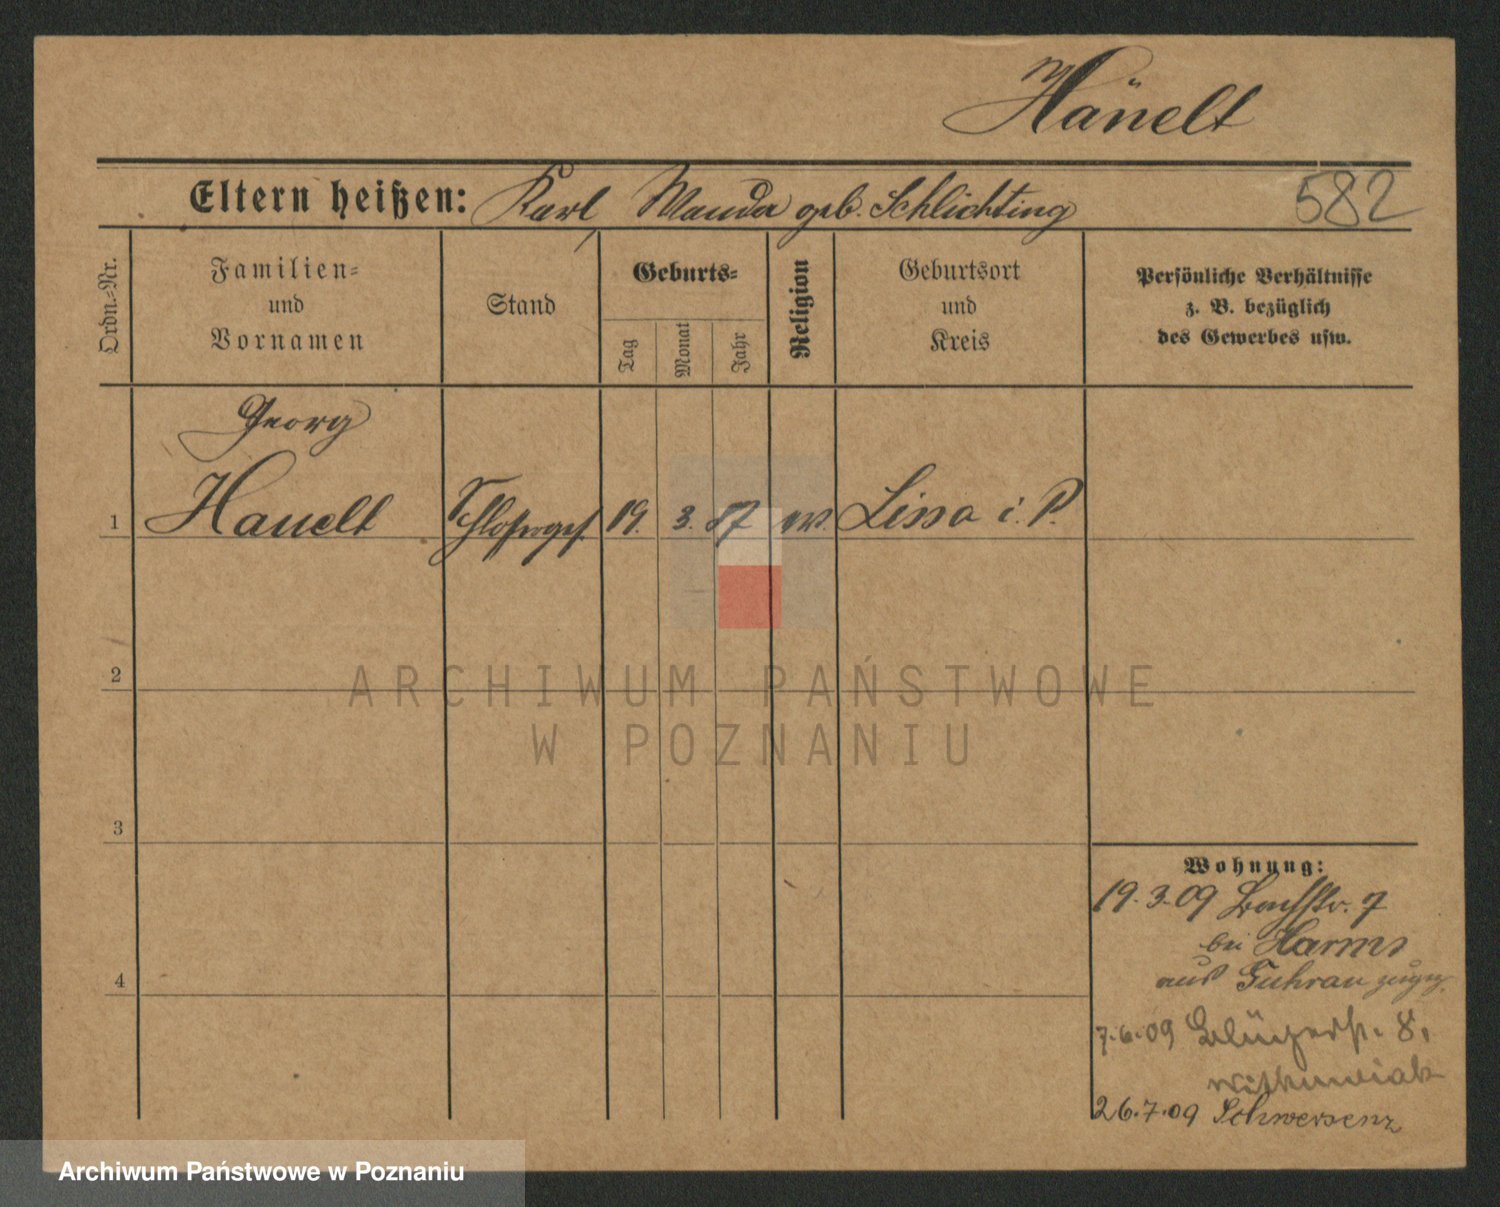 Hänelt
Eltern heißen: Karl, Wanda geb. Schlichting 582
Ordn.-Nr.
Familien-
und
Vornamen
Stand
Geburts-
Tag
Monat
Jahr
Religion
Geburtsort
und
Kreis
Persönliche Verhältnisse
z. B. bezüglich
des Gewerbes usw.
Georg
1 Hanelt Schlosserges. 19. 3. 87 ev. Lissa i. P.
2
ARCHIWUM PAŃSTWOWE
W POZNANIU
3
4
Wohnung:
19.3.09 Bachstr. 7
bei Harms
aus Guhrau zugez.
7.6.09 8,
26.7.09 Schwersenz
Archiwum Państwowe w Poznaniu